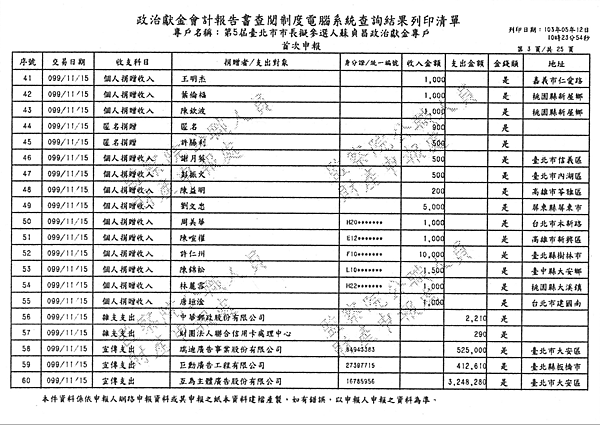 政治獻金會計報告書查閱制度電腦系統查詢結果列印清單
專戶名稱：第5屆臺北市市長擬參選人蘇貞昌政治獻金專戶
首次申報
列印日期：103年05年12日
10時23分54秒
第 3 頁/共 25 頁
序號 交易日期 收支科目 捐贈者/支出對象 身分證/統一編號 收入金額 支出金額 金錢類
41 099/11/15 個人捐贈收入 王明杰 1,000 是 嘉義市仁愛路
42 099/11/15 個人捐贈收入 葉倫福 1,000 是 桃園縣新屋鄉
43 099/11/15 個人捐贈收入 陳欽波 1,000 是 桃園縣新屋鄉
44 099/11/15 匿名捐贈 匿名 900 是
45 099/11/15 匿名捐贈 許勝利 500 是
46 099/11/15 個人捐贈收入 謝月英 500 是 臺北市信義區
47 099/11/15 個人捐贈收入 彭振文 500 是 臺北市內湖區
48 099/11/15 個人捐贈收入 陳益明 200 是 高雄市苓雅區
49 099/11/15 個人捐贈收入 劉文忠 5,000 是 屏東縣屏東市
50 099/11/15 個人捐贈收入 周美華 H20******* 1,000 是 台北市木新路
51 099/11/15 個人捐贈收入 陳喧權 E12******* 1,000 是 高雄市新興區
52 099/11/15 個人捐贈收入 許仁川 F10******* 10,000 是 臺北縣樹林市
53 099/11/15 個人捐贈收入 陳錦松 L10******* 1,500 是 臺中縣大安鄉
54 099/11/15 個人捐贈收入 林麗露 H22******* 1,000 是 桃園縣大溪鎮
55 099/11/15 個人捐贈收入 唐垣淦 1,000 是 台北市建國南
56 099/11/15 雜支支出 中華郵政股份有限公司 2,210 是
57 099/11/15 雜支支出 財團法人聯合信用卡處理中心 290 是
58 099/11/15 宣傳支出 瑞迪廣告事業股份有限公司 84943383 525,000 是 臺北市大安區
59 099/11/15 宣傳支出 巨勳廣告工程有限公司 27397715 412,610 是 臺北縣板橋市
60 099/11/15 宣傳支出 互為主體廣告股份有限公司 16785956 3,248,280 是 臺北市大安區
監察院公職人員
財產申報處
監察院公職人員
財產申報處
本件資料係依申報人網路申報資料或其申報之紙本資料建檔產製，如有錯誤，以申報人申報之資料為準。